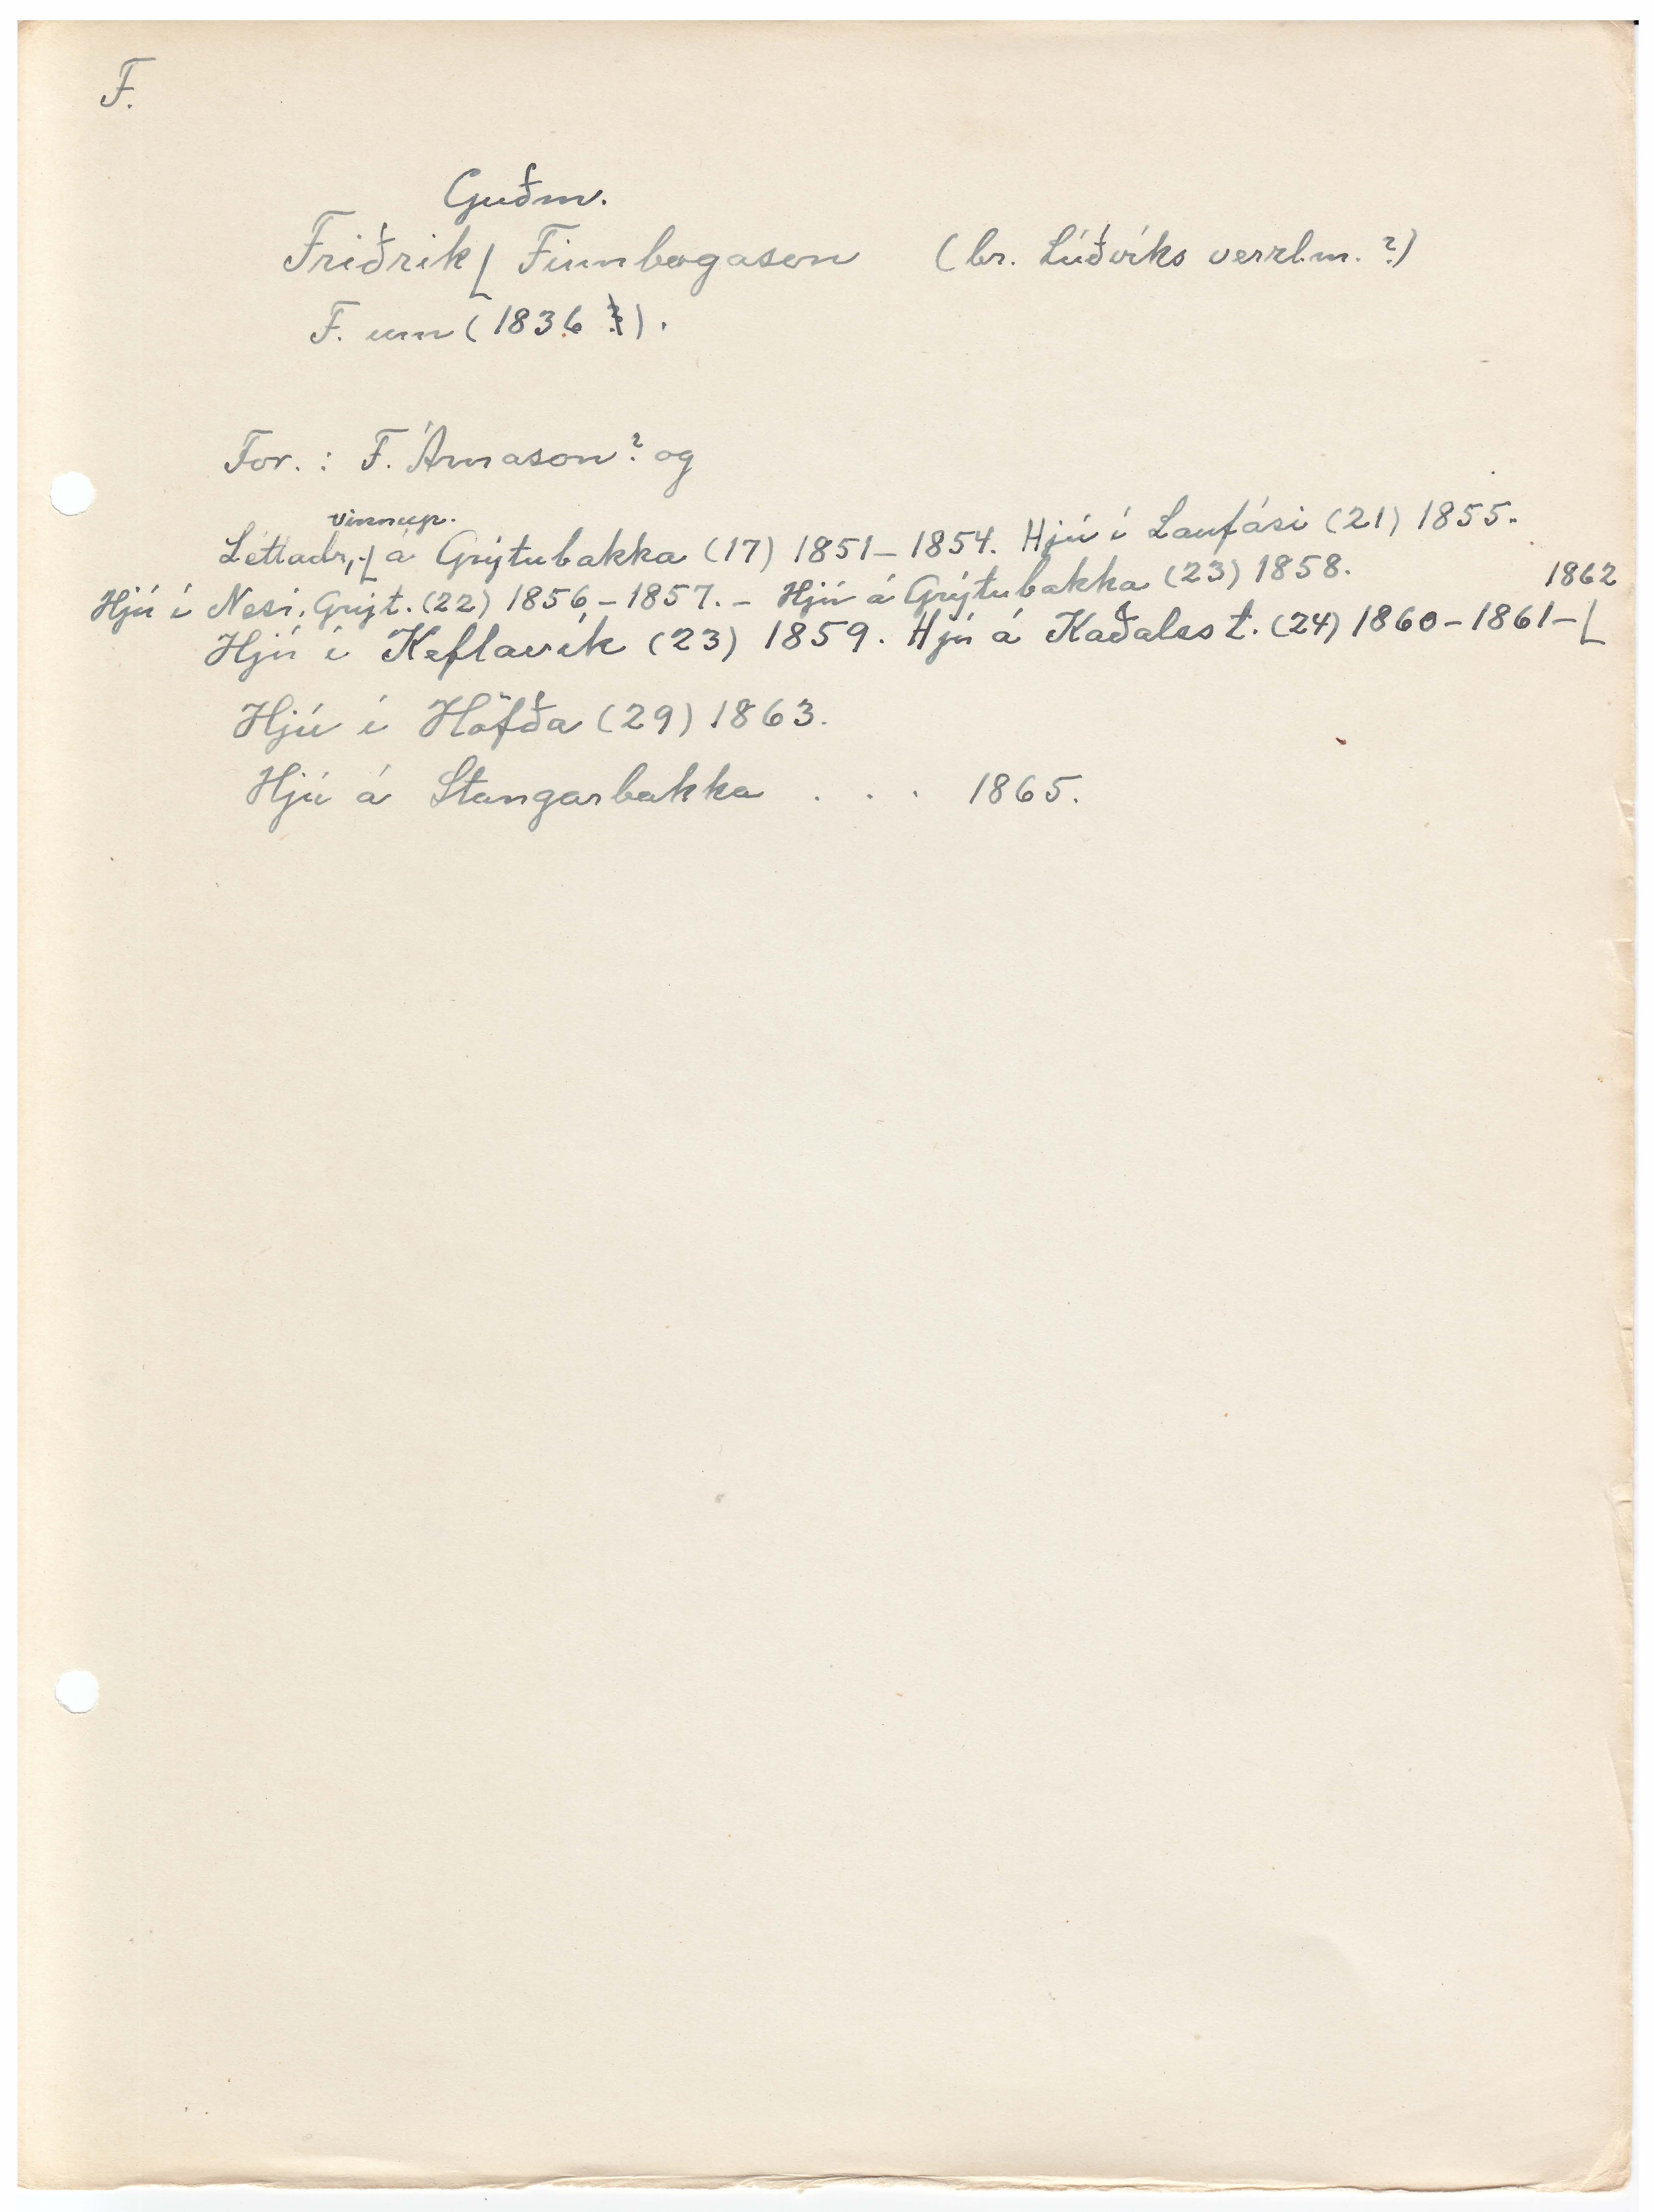 F.
Guðm.
Friðrik ⌊ Finnbogason (br. Lúðvíks verzlm. ?)
F. um (1836 ?).
For.: F. Árnason? og
vinnup.
Léttadr., ⌊ á Grýtubakka (17) 1851–1854. Hjú í Laufási (21) 1855.
Hjú í Nesi, Grýt. (22) 1856–1857. – Hjú á Grýtubakka (23) 1858.
1862
Hjú í Keflavík (23) 1859. Hjú á Kaðalsst. (24) 1860–1861–⌊
Hjú í Höfða (29) 1863.
Hjú á Stangarbakka . . . 1865.